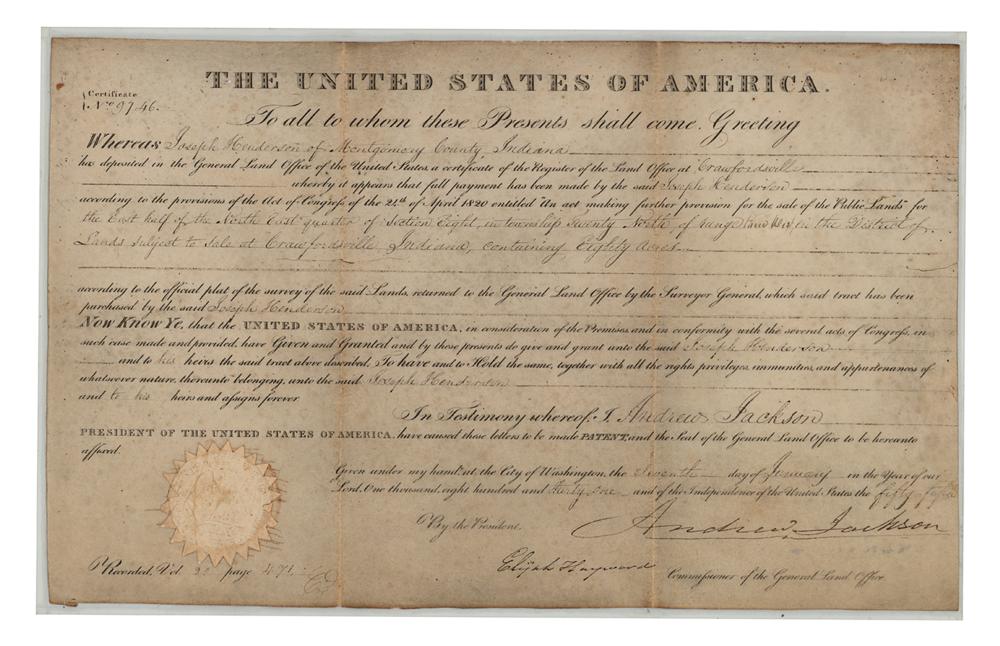 THE UNITED STATES OF AMERICA.
Certificate
No. 9746.
To all to whom these Presents shall come, Greeting
Whereas Joseph Henderson of Montgomery County, Indiana
has deposited in the General Land Office of the United States, a certificate of the Register of the Land Office at Crawfordsville
whereby it appears that full payment has been made by the said Joseph Henderson
according to the provisions of the Act of Congress of the 24th of April 1820 entitled "An act making further provision for the sale of the Public Lands" for
the East half of the North East quarter of Section Eight, in township Twenty North, of range in the District of
Lands subject to sale at Crawfordsville, Indiana, containing Eighty Acres
according to the official plat of the survey of the said Lands, returned to the General Land Office by the Surveyor General, which said tract has been
purchased by the said Joseph Henderson
Now Know Ye, that the UNITED STATES OF AMERICA, in consideration of the Premises, and in conformity with the several acts of Congress, in
such case made and provided, have Given and Granted and by these presents do give and grant unto the said Joseph Henderson
and to his heirs the said tract above described, To have and to Hold the same, together with all the rights privileges, immunities, and appurtenances of
whatsoever nature, thereunto belonging, unto the said Joseph Henderson
and to his heirs and assigns forever
In Testimony whereof, I, Andrew Jackson
PRESIDENT OF THE UNITED STATES OF AMERICA, have caused these letters to be made PATENT, and the Seal of the General Land Office to be hereunto
affixed.
Given under my hand, at the City of Washington, the Seventh day of January in the Year of our
Lord, One thousand, eight hundred and thirty one and of the Independence of the United States the fifty fifth
By the President, Andrew Jackson
Elijah Hayward Commissioner of the General Land Office
Recorded, Vol page 471